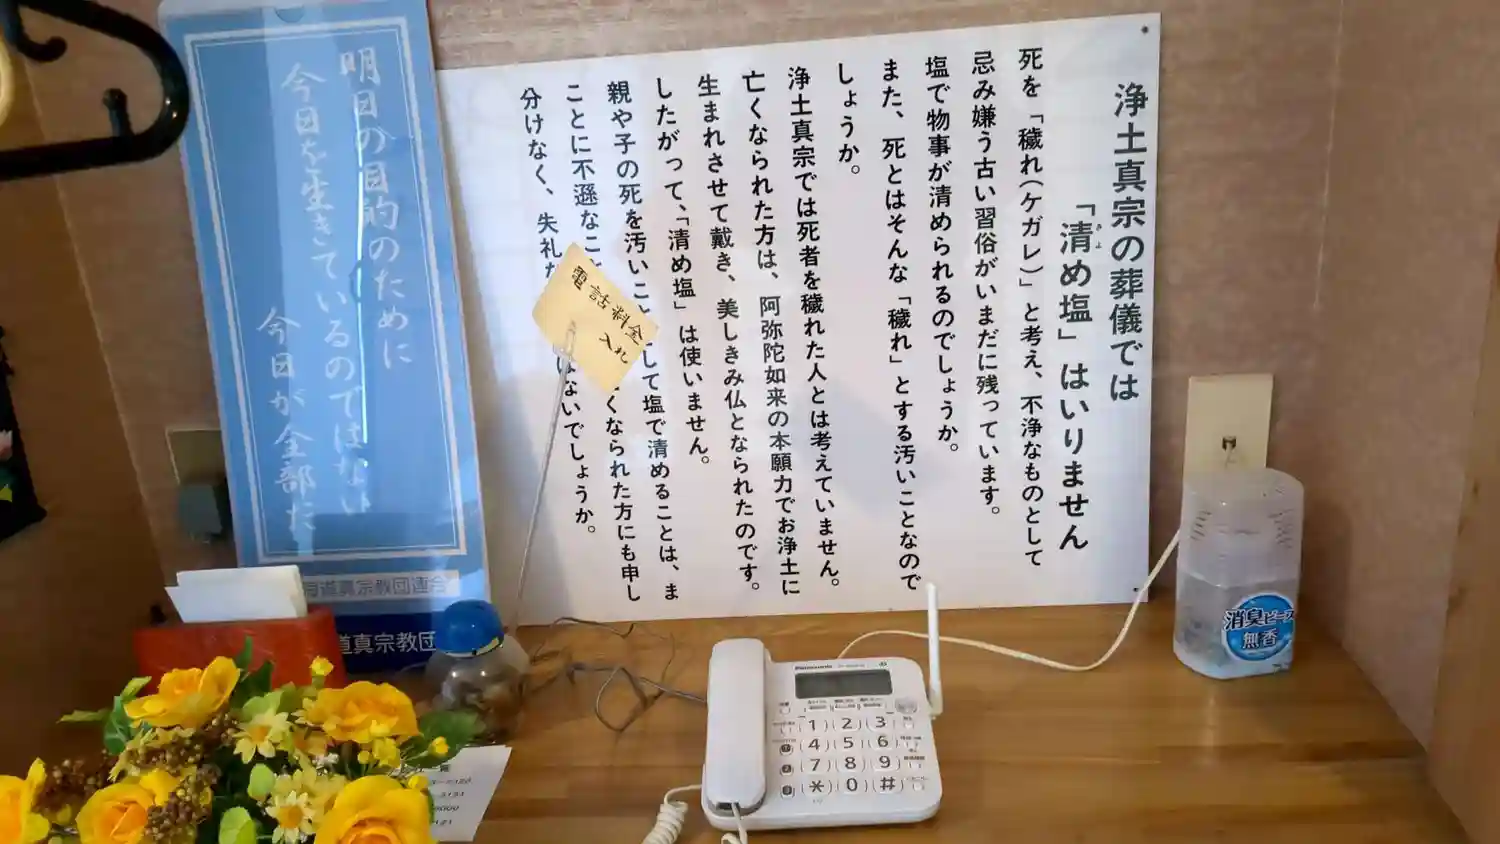 浄土真宗の葬儀では
「清め塩」はいりません
きよ
死を「穢れ(ケガレ)」と考え、不浄なものとして
忌み嫌う古い習俗がいまだに残っています。
塩で物事が清められるのでしょうか。
また、死とはそんな「穢れ」とする汚いことなので
しょうか。
浄土真宗では死者を穢れた人とは考えていません。
亡くなられた方は、阿弥陀如来の本願力でお浄土に
生まれさせて戴き、美しきみ仏となられたのです。
したがって、「清め塩」は使いません。
親や子の死を汚いこ して塩で清めることは、ま
ことに不遜なこ くなられた方にも申し
分けなく、失礼 はないでしょうか。
電話料金
入れ
明日の目的のために
今日を生きているのではない
今日が全部だ
道真宗教団連合
道真宗教団
Panasonic
1 2 3
4 5 6
7 8 9
* 0 #
消臭ビーズ
無香